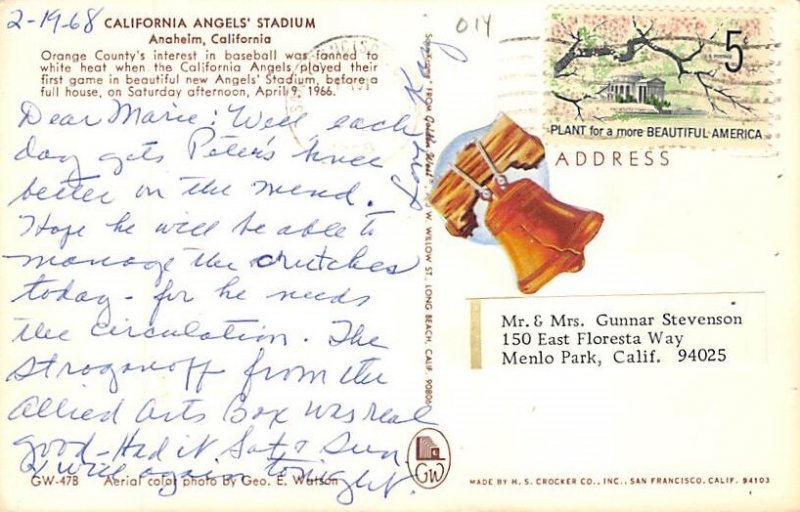 2-19-68
CALIFORNIA ANGELS' STADIUM
Anaheim, California
Orange County's interest in baseball was fanned to
white heat when the California Angels played their
first game in beautiful new Angels' Stadium, before a
full house, on Saturday afternoon, April 9, 1966.
Dear Marie: Well, each
day gets Peter's knee
better on the mend.
Hope he will be able to
manage the crutches
today - for he needs
the circulation. The
Stroganoff from the
Allied Arts Box was real
good - Had it Sat & Sun
& will again tonight.
GW-47B Aerial color photo by Geo. E. Watson
FROM Golden West
WILLOW ST., LONG BEACH, CALIF. 90806
GW
014
5
PLANT for a more BEAUTIFUL AMERICA
ADDRESS
Mr. & Mrs. Gunnar Stevenson
150 East Floresta Way
Menlo Park, Calif. 94025
MADE BY H. S. CROCKER CO., INC., SAN FRANCISCO, CALIF. 94103